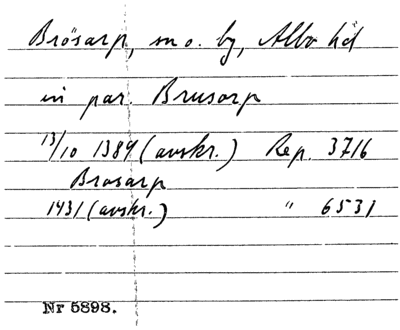 Brösarp, sn o. by, Albo hd
in par. Brusorp
13/10 1384 (avskr.) Rep. 3716
Brosarp
1431 (avskr.) " 6531
Nr 5898.